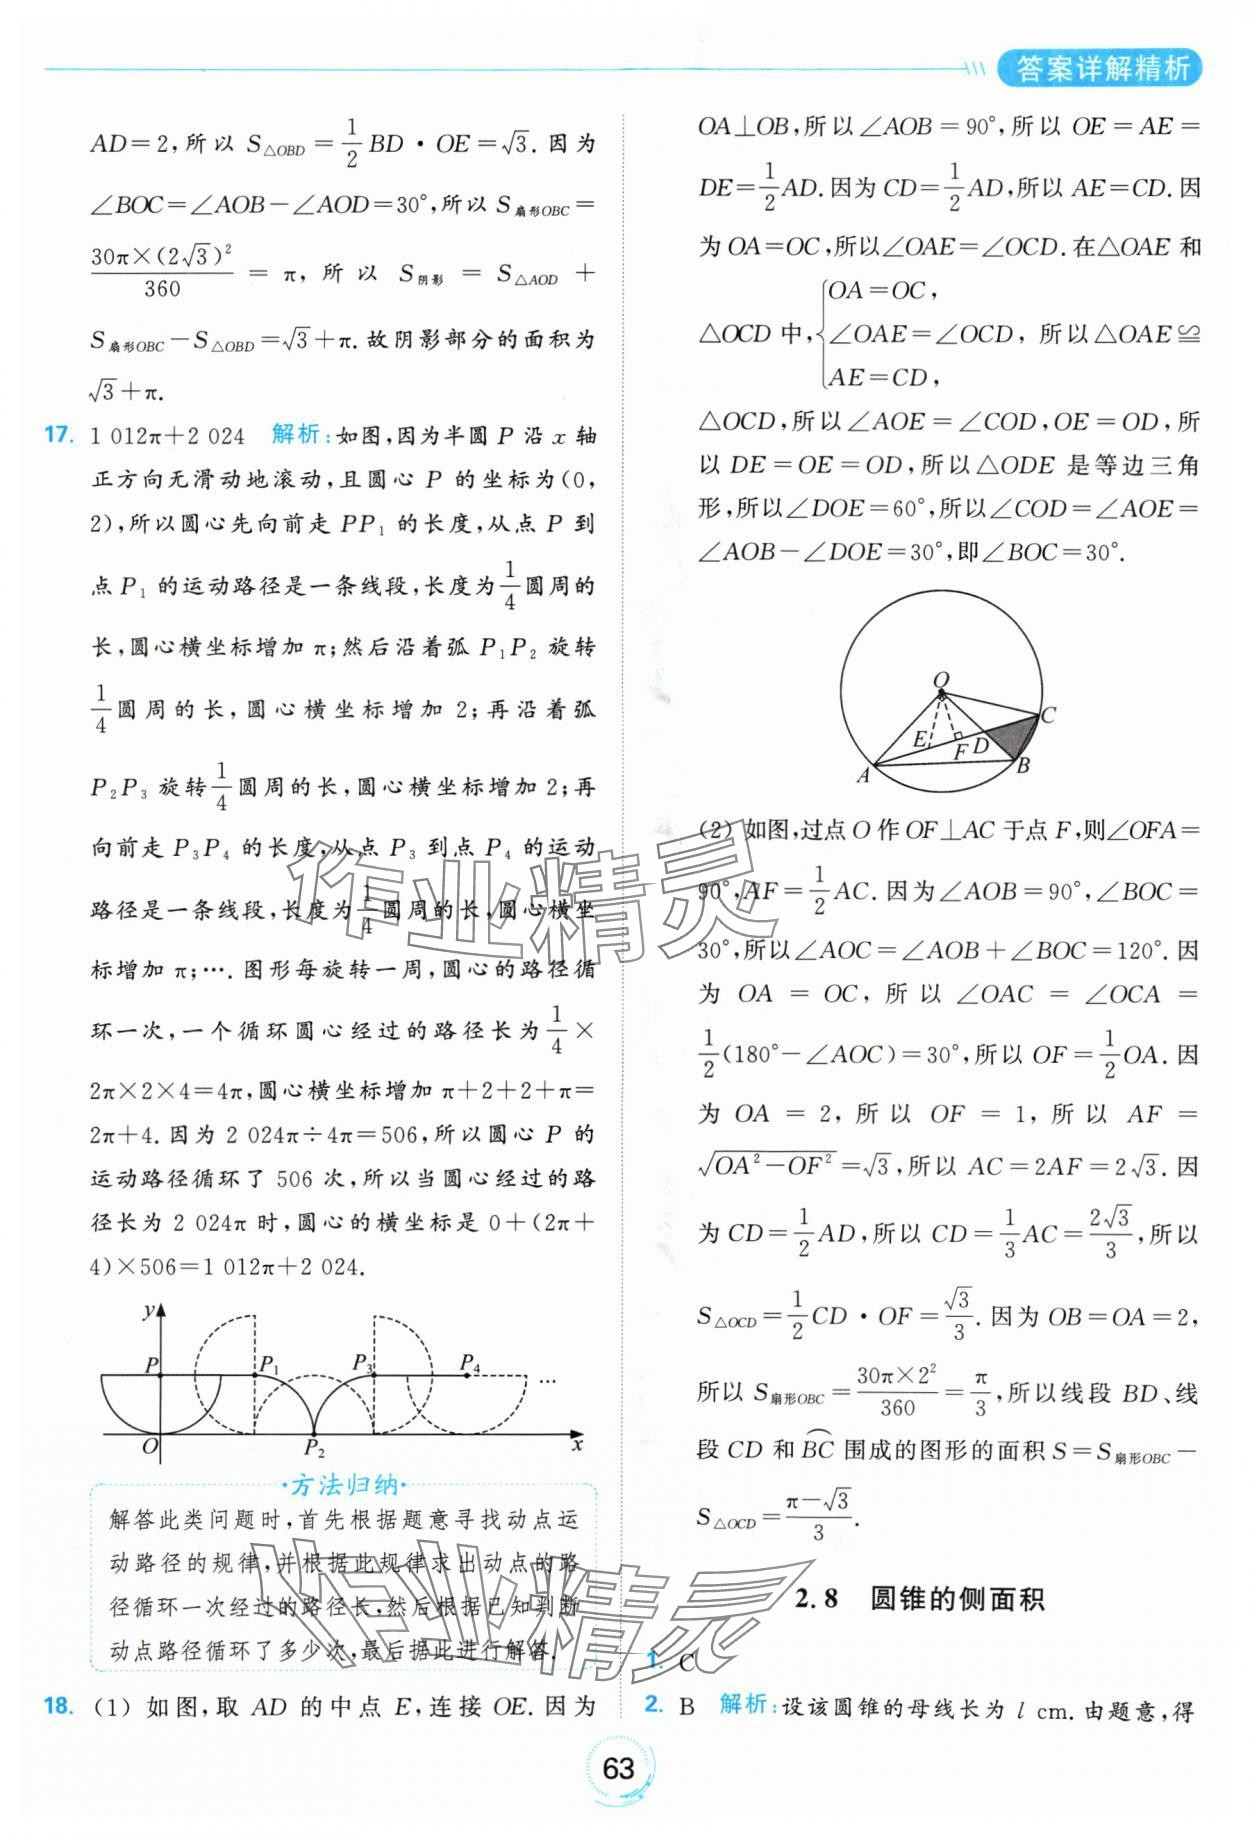 答案详解精析
AD=2,所以 S△OBD=1/2 BD·OE=√3.因为
∠BOC=∠AOB-∠AOD=30°,所以 S扇形OBC=
30π×(2√3)²/360=π,所以 S阴影=S△AOD+
S扇形OBC-S△OBD=√3+π.故阴影部分的面积为
√3+π.
17. 1 012π+2 024 解析:如图,因为半圆 P 沿 x 轴
正方向无滑动地滚动,且圆心 P 的坐标为(0,
2),所以圆心先向前走 PP₁ 的长度,从点 P 到
点 P₁ 的运动路径是一条线段,长度为1/4圆周的
长,圆心横坐标增加 π;然后沿着弧 P₁P₂ 旋转
1/4圆周的长,圆心横坐标增加 2;再沿着弧
P₂P₃ 旋转1/4圆周的长,圆心横坐标增加 2;再
向前走 P₃P₄ 的长度,从点 P₃ 到点 P₄ 的运动
路径是一条线段,长度为1/4圆周的长,圆心横坐
标增加 π;….图形每旋转一周,圆心的路径循
环一次,一个循环圆心经过的路径长为1/4×
2π×2×4=4π,圆心横坐标增加 π+2+2+π=
2π+4.因为 2 024π÷4π=506,所以圆心 P 的
运动路径循环了 506 次,所以当圆心经过的路
径长为 2 024π 时,圆心的横坐标是 0+(2π+
4)×506=1 012π+2 024.
y
P P₁ P₃ P₄ …
O P₂ x
·方法归纳·
解答此类问题时,首先根据题意寻找动点运
动路径的规律,并根据此规律求出动点的路
径循环一次经过的路径长,然后根据已知判断
动点路径循环了多少次,最后据此进行解答.
18. (1) 如图,取 AD 的中点 E,连接 OE.因为
OA⊥OB,所以∠AOB=90°,所以 OE=AE=
DE=1/2AD.因为 CD=1/2AD,所以 AE=CD.因
为 OA=OC,所以∠OAE=∠OCD.在△OAE 和
△OCD 中,{OA=OC, ∠OAE=∠OCD, AE=CD, 所以△OAE≌
△OCD,所以∠AOE=∠COD,OE=OD,所
以 DE=OE=OD,所以△ODE 是等边三角
形,所以∠DOE=60°,所以∠COD=∠AOE=
∠AOB-∠DOE=30°,即∠BOC=30°.
O
C
E F D
A B
(2) 如图,过点 O 作 OF⊥AC 于点 F,则∠OFA=
90°,AF=1/2AC.因为∠AOB=90°,∠BOC=
30°,所以∠AOC=∠AOB+∠BOC=120°.因
为 OA=OC,所以∠OAC=∠OCA=
1/2(180°-∠AOC)=30°,所以 OF=1/2OA.因
为 OA=2,所以 OF=1,所以 AF=
√(OA²-OF²)=√3,所以 AC=2AF=2√3.因
为 CD=1/2AD,所以 CD=1/3AC=2√3/3,所以
S△OCD=1/2CD·OF=√3/3.因为 OB=OA=2,
所以 S扇形OBC=30π×2²/360=π/3,所以线段 BD、线
段 CD 和⌒BC 围成的图形的面积 S=S扇形OBC-
S△OCD=(π-√3)/3.
2.8 圆锥的侧面积
1. C
2. B 解析:设该圆锥的母线长为 l cm.由题意,得
63
作业精灵
作业精灵